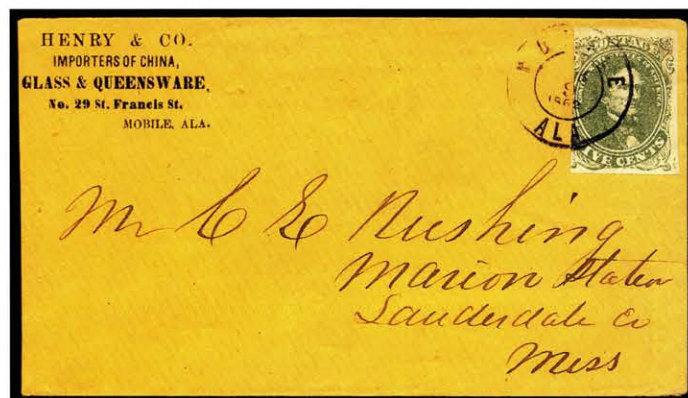 HENRY & CO.
IMPORTERS OF CHINA,
GLASS & QUEENSWARE,
No. 29 St. Francis St.
MOBILE, ALA.
POSTAGE
ALA
FIVE CENTS
Mr C E Rushing
Marion Station
Lauderdale Co
Miss